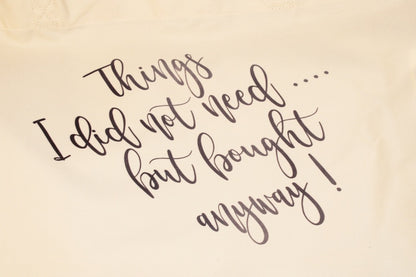 Things
I did not need ....
but bought
anyway!